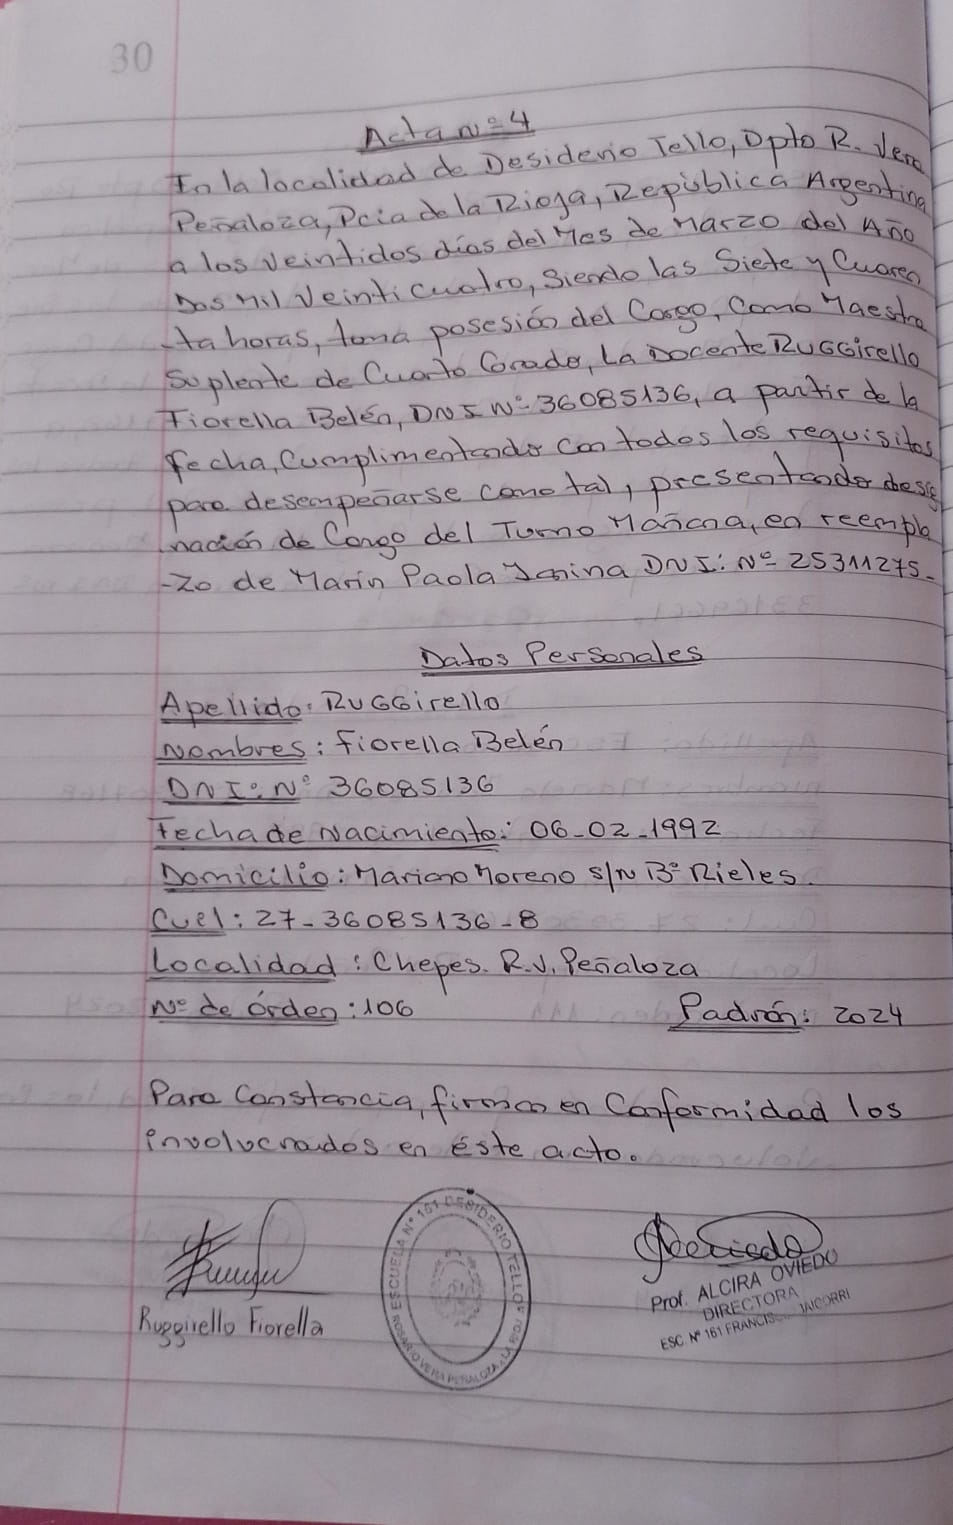 30
Acta N=° 4
En la localidad de Desiderio Tello, Dpto R. Vera
Peñaloza, Pcia de la Rioja, República Argentina
a los veintidos días del Mes de Marzo del Año
Dos Mil Veinticuatro, Siendo las Siete y Cuaren
-ta horas, toma posesión del Cargo, Como Maestra
Suplente de Cuarto Grado, La Docente RUGGirello
Fiorella Belén, DNI N° 36085136, a partir de la
fecha, Cumplimentando con todos los requisitos
para desempeñarse como tal, presentando desig
nación de Cargo del Turno Mañana, en reempla
-zo de Marín Paola Janina DNI: Nº 25311275.-
Datos Personales
Apellido: RUGGirello
Nombres: Fiorella Belén
DNI: N° 36085136
Fecha de Nacimiento: 06-02-1992
Domicilio: Mariano Moreno s/N B° Rieles.
Cuel: 27-36085136-8
Localidad: Chepes. R.V. Peñaloza
N° de órden: 106 Padrón: 2024
Para Constancia, firman en Conformidad los
involucrados en éste acto.
Ruggirello Fiorella
ESCUELA Nº 161 DESIDERIO TELLO
ROSARIO VERA PEÑALOZA LA RIOJA
Prof. ALCIRA OVIEDO
DIRECTORA
ESC Nº 161